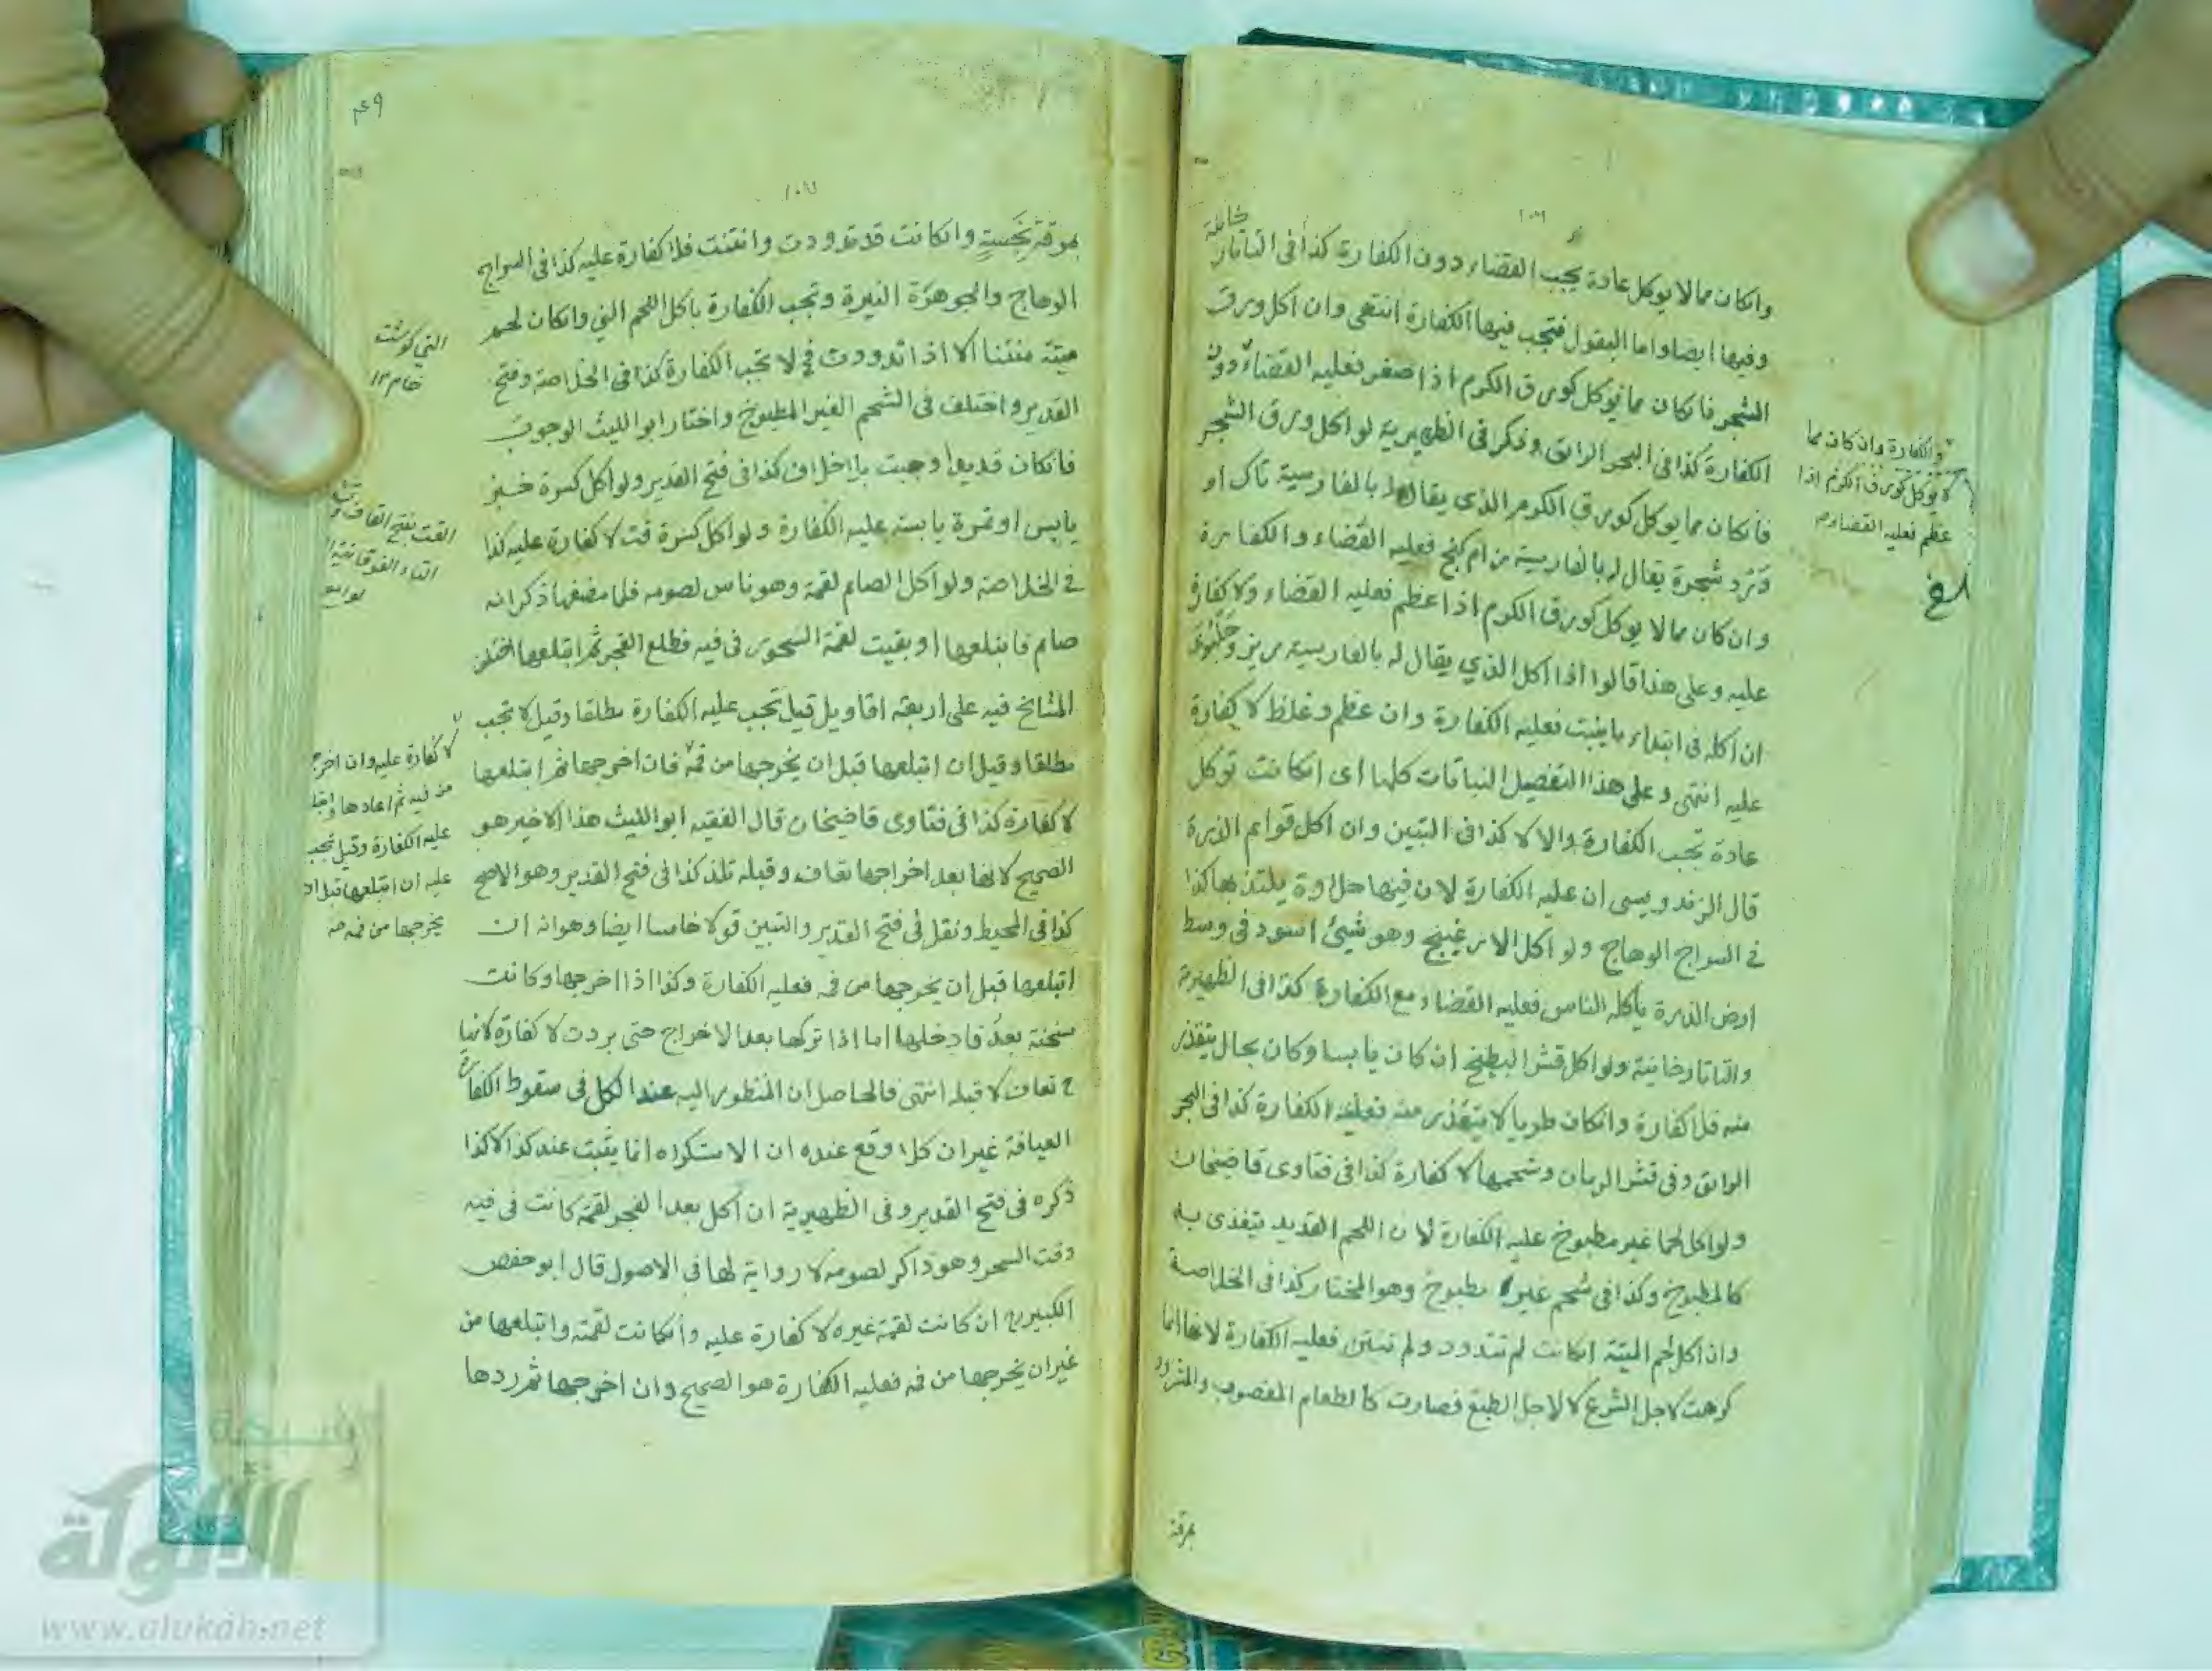 وانكان مما لا يوكل عادة يجب القضاء دون الكفارة كذا فى التاتار
خانية
وفيها ايضا واما البقول فتجب فيها الكفارة انتهى وان اكل ورق
الشجر فانكان مما يوكل كورق الكرم اذا صغر فعليه القضاء دون
الكفارة كذا فى البحر الرائق وذكر فى الظهيرية لو اكل ورق الشجر
فانكان مما يوكل كورق الكرم الذى يقال لها بالفارسية تاك او
شجرة يقال له بالفارسية فعليه القضاء والكفارة
وان كان مما لا يوكل كورق الكرم اذا عظم فعليه القضاء ولا كفارة
عليه وعلى هذا قالوا اذا اكل الذي يقال له بالفارسية
ان اكله فى ابتداء ما ينبت فعليه الكفارة وان عظم وغلظ لا كفارة
عليه انتهى وعلى هذا التفصيل النباتات كلها اى انكانت توكل
عادة تجب الكفارة والا لا كذا فى التبين وان اكل قوائم الذرة
قال الزندويسى ان عليه الكفارة لان فيها حلاوة يلتذ بها كذا
فى السراج الوهاج ولو اكل وهو شيئ اسود فى وسط
ارض الذرة ياكله الناس فعليه القضاء مع الكفارة كذا فى الظهيرية
والتاتارخانية ولو اكل قشر البطيخ ان كان يابسا وكان بحال يتقذر
منه فلا كفارة وانكان طريا لا يتقذر منه فعليه الكفارة كذا فى البحر
الرائق وفى قشر الرمان وشحمها لا كفارة كذا فى فتاوى قاضيخان
ولو اكل لحما غير مطبوخ عليه الكفارة لان اللحم القديد يتغذى به
كالمطبوخ وكذا فى شحم غير مطبوخ وهو المختار كذا فى الخلاصة
وان اكل لحم الميتة انكانت لم تتدود ولم تنتن فعليه الكفارة لانها انما
كرهت لاجل الشرع لا لاجل الطبع فصارت كالطعام المغصوب والمثرود
بمرقة
والكفارة وان كان مما
لا يوكل كورق الكرم اذا
عظم فعليه القضاء
بمرقة نجسة وانكانت قد تدودت وانتنت فلا كفارة عليه كذا فى السراج
الوهاج والجوهرة النيرة وتجب الكفارة باكل اللحم النى وانكان لحم
ميتة منتنا الا اذا تدودت فح لا تجب الكفارة كذا فى الخلاصة وفتح
القدير واختلف فى الشحم الغير المطبوخ واختار ابو الليث الوجوب
فانكان قديدا وجبت بلا خلاف كذا فى فتح القدير ولو اكل كسرة خبز
يابس او تمرة يابسة عليه الكفارة ولو اكل كسرة قت لا كفارة عليه كذا
فى الخلاصة ولو اكل الصائم لقمة وهو ناس لصومه فلما مضغها ذكر انه
صائم فابتلعها او بقيت لقمة السحور فى فيه فطلع الفجر ثم ابتلعها اختلف
المشائخ فيه على اربعة اقاويل قيل تجب عليه الكفارة مطلقا وقيل لا تجب
مطلقا وقيل ان ابتلعها قبل ان يخرجها من فمه فان اخرجها ثم ابتلعها
لا كفارة كذا فى فتاوى قاضيخان قال الفقيه ابو الليث هذا الاخير هو
الصحيح لانها بعد اخراجها تعاف وقبله تلذ كذا فى فتح القدير وهو الاصح
كذا فى المحيط ونقل فى فتح القدير والتبين قولا خامسا ايضا وهو انه ان
ابتلعها قبل ان يخرجها من فمه فعليه الكفارة وكذا اذا اخرجها وكانت
سخنة بعد فادخلها اما اذا تركها بعد الاخراج حتى بردت لا كفارة لانها
ح تعاف لا قبله انتهى فالحاصل ان المنظور اليه عند الكل فى سقوط الكفارة
العيافة غير ان كلا وقع عنده ان الاستكراه انما يثبت عند كذا لا كذا
ذكره فى فتح القدير وفى الظهيرية ان اكل بعد الفجر لقمة كانت فى فيه
وقت السحر وهو ذاكر لصومه لا رواية لها فى الاصول قال ابو حفص
الكبير ان كانت لقمة غيره لا كفارة عليه وانكانت لقمته وابتلعها من
غير ان يخرجها من فمه فعليه الكفارة هو الصحيح وان اخرجها ثم ردها
النى كوشت
خام ١٢
القت بفتح القاف
التاء الفوقانية
لا كفارة عليه وان اخرج
من فيه ثم اعادها
عليه الكفارة وقيل تجب
عليه ان ابتلعها قبل ان
يخرجها من فمه
شبكة
الألوكة
www.alukah.net